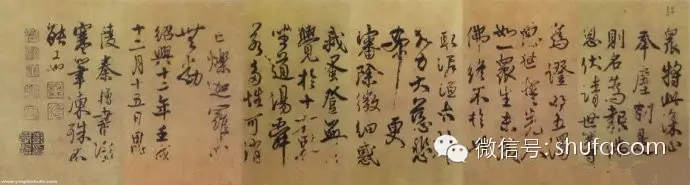 衆將此深心
奉塵刹是
則名為報佛
恩伏請世尊
為證明五濁
惡世誓先入
如一衆生未成
佛終不於此
取泥洹大
大力大慈悲
希更
審除微細惑
我蚤登無上
覺於十方界
坐道場舜
若多性可銷
亡爍迦羅心
無動
紹興十二年壬戌
十二月十五日
陵秦檜書
寒筆凍殊不
能工
微信号: shufa:com